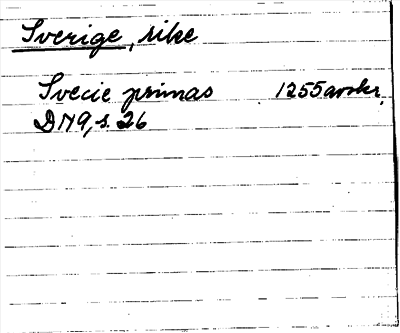 Sverige, rike
Svecie primas 1255 avskr.
DN9, s. 26